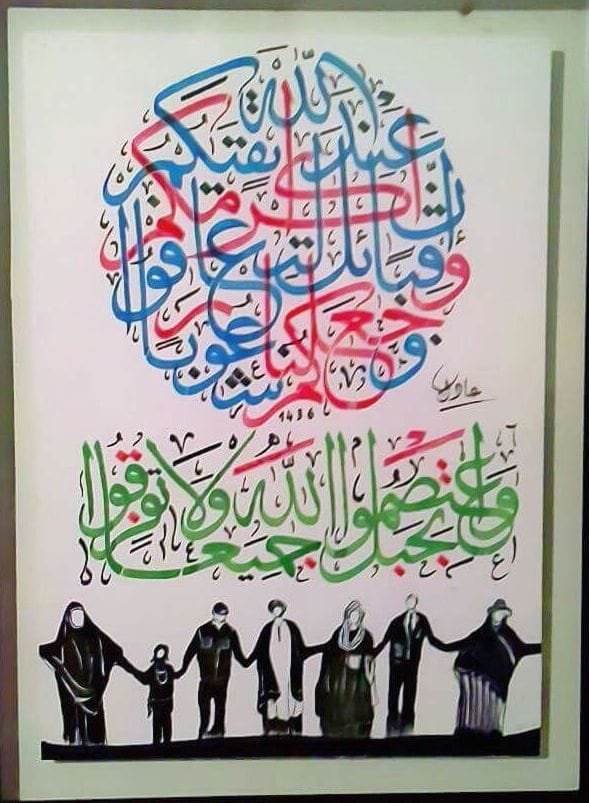 وَجَعَلْنَٰكُمْ شُعُوبًا وَقَبَائِلَ لِتَعَارَفُوا إِنَّ أَكْرَمَكُمْ عِنْدَ اللَّهِ أَتْقَىٰكُمْ
1436
وَاعْتَصِمُوا بِحَبْلِ اللَّهِ جَمِيعًا وَلَا تَفَرَّقُوا